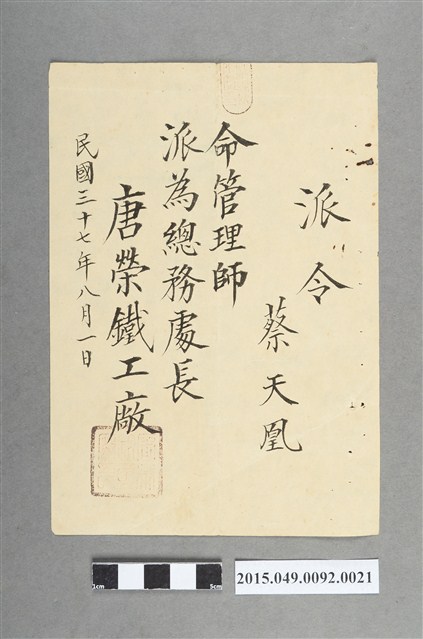 派令
蔡天凰
命管理師
派為總務處長
唐榮鐵工廠
民國三十七年八月一日
1cm
5cm
2015.049.0092.0021